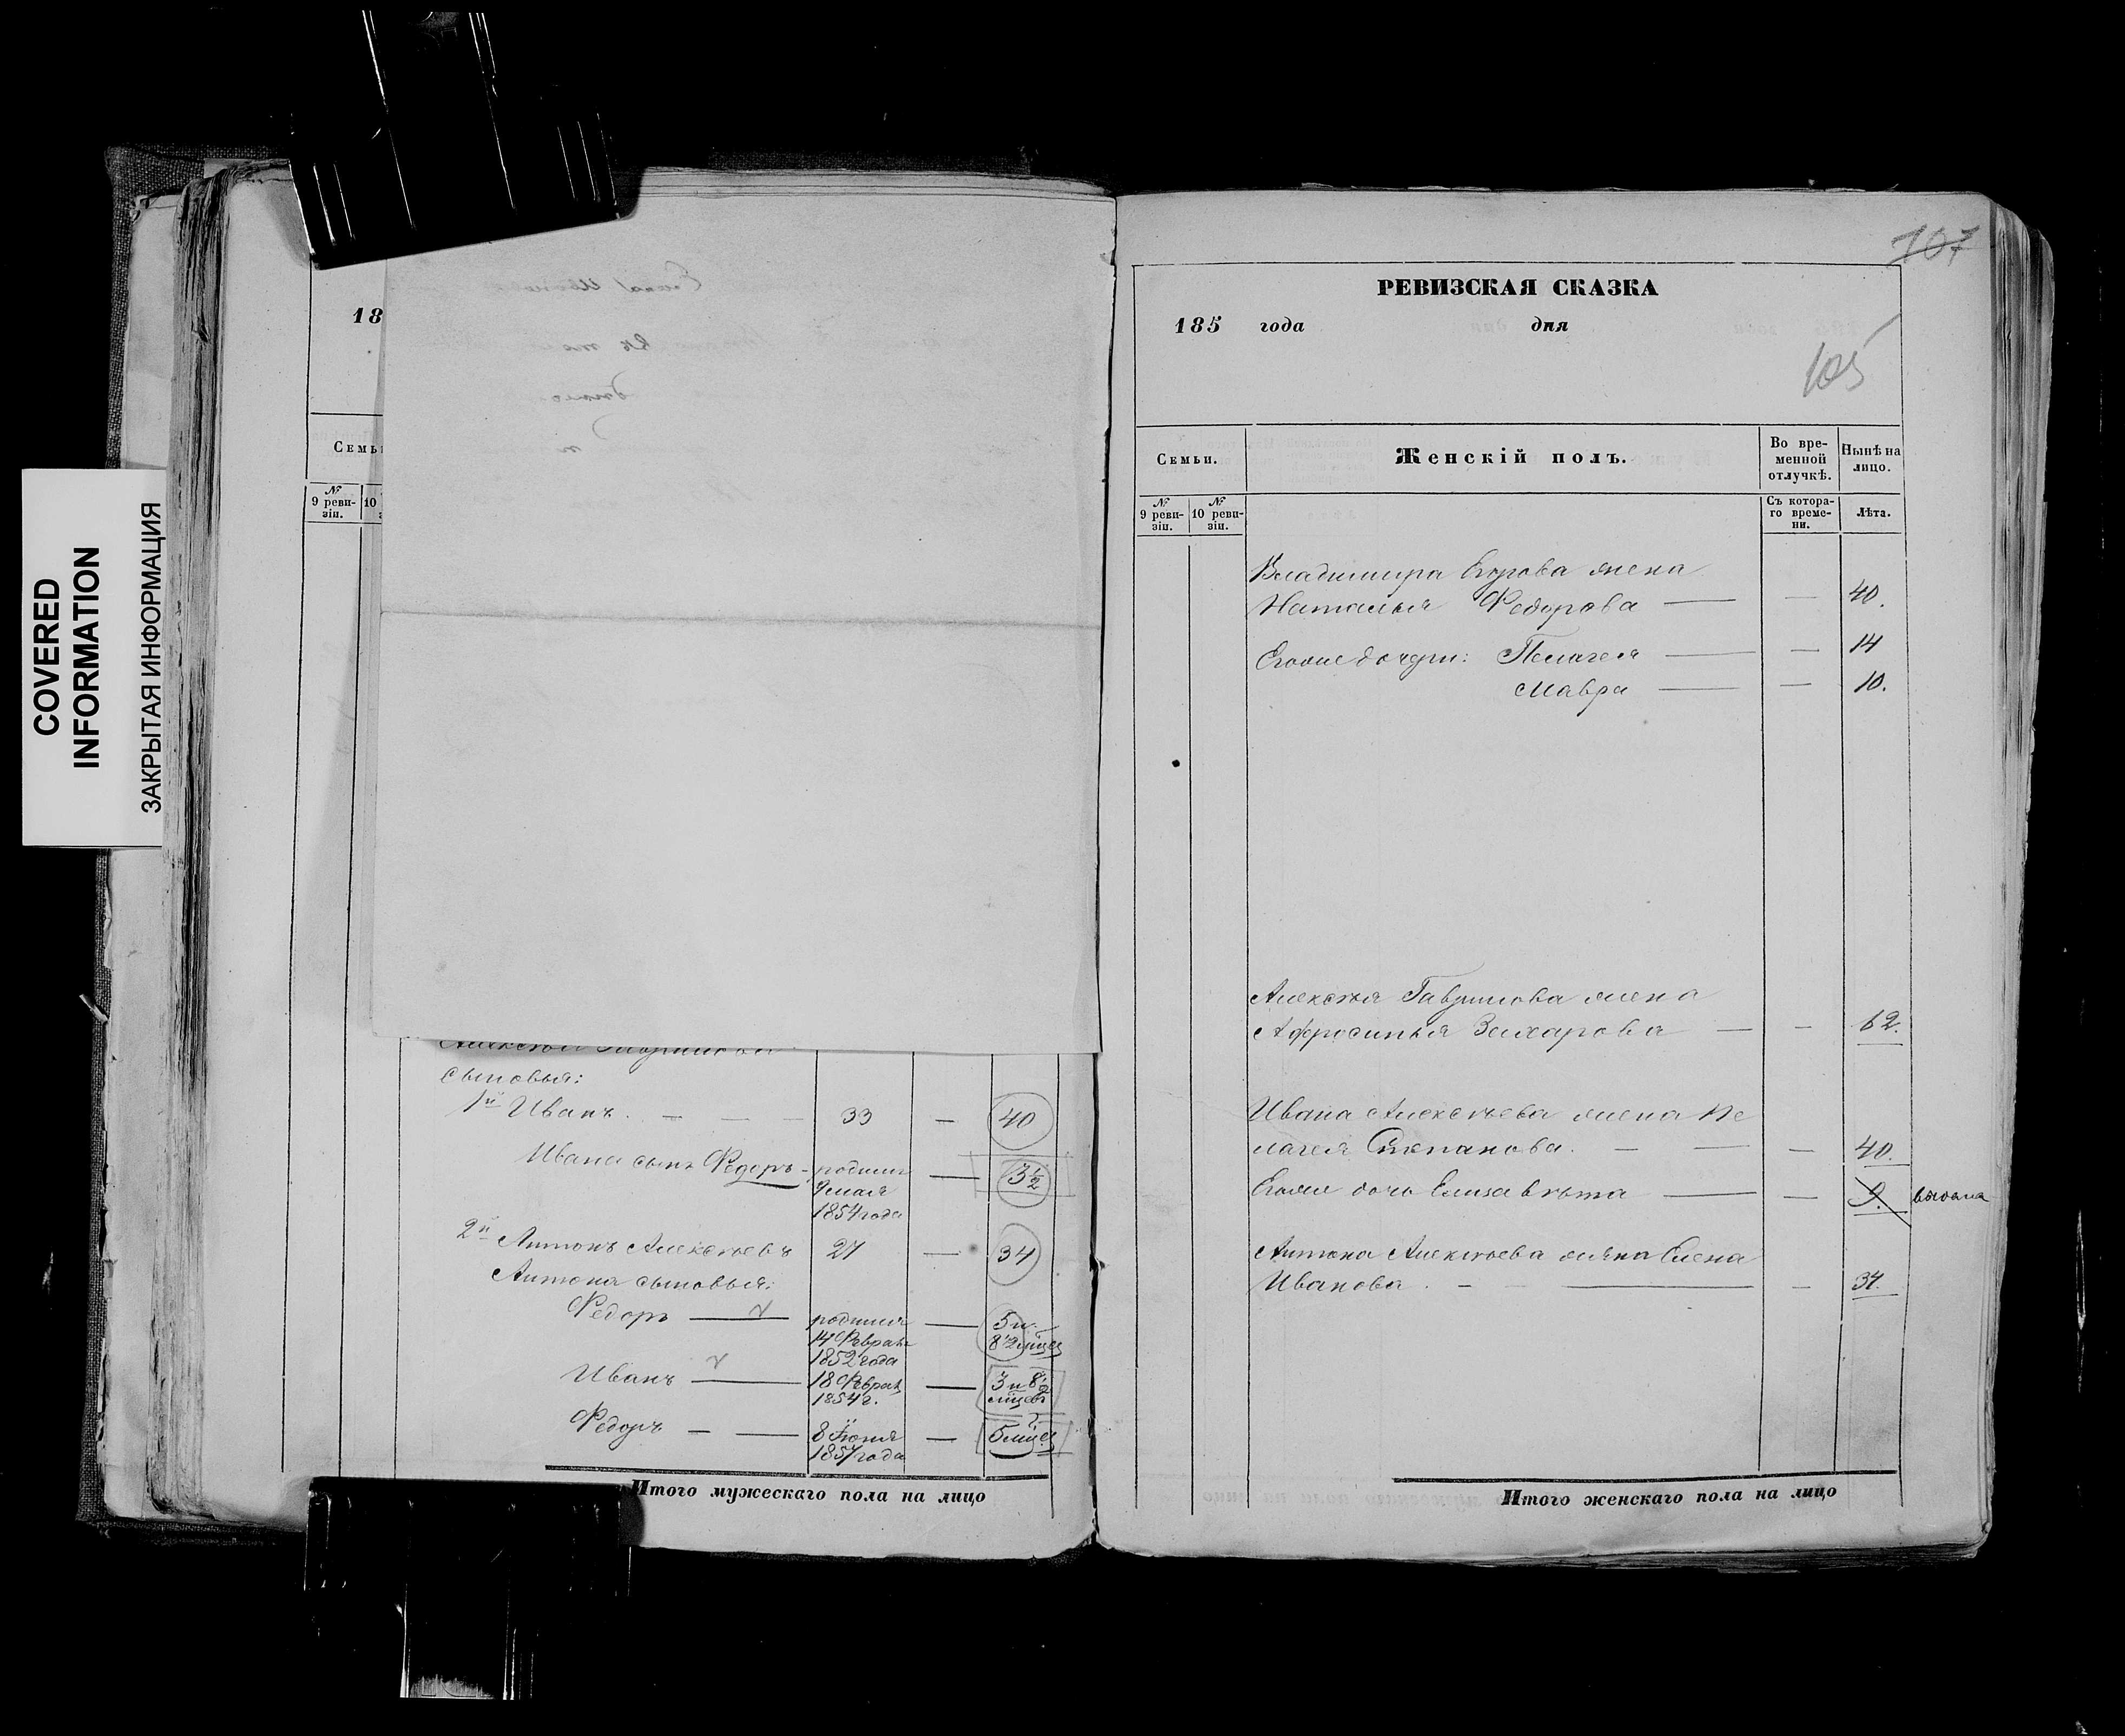 COVERED
INFORMATION
ЗАКРЫТАЯ ИНФОРМАЦИЯ
18
Семьи
№
9 реви-
зіи.
10
Сыновья:
1й Иванъ. — — — 33 — 40
Ивана сынъ Федоръ - родился — 3½
9 мая
1854 года
2й Антонъ Алексѣевъ 27 — 34
Антона сыновья:
Федоръ — родился — 5 и
14 Февраля 8½ мцов
1852 года
Иванъ — 18 Февраля — 3 и 8½
1854 г. мцовъ
Федоръ — — 8 Іюня — 5 мцов
1857 года
Итого мужескаго пола на лицо
107
РЕВИЗСКАЯ СКАЗКА
185 года дня
105
Семьи.
Женскій полъ.
Во вре-
менной
отлучкѣ.
Нынѣ на
лицо.
№
9 реви-
зіи.
№
10 реви-
зіи.
Съ котора-
го време-
ни.
Лѣта.
Владимира Егорова жена
Наталья Федорова — — 40.
Еговы дочери: Пелагея — — 14
Мавра — — 10.
Алексѣя Гаврилова жена
Афросинья Захарова — — 62.
Ивана Алексѣева жена Пе
лагея Степанова. — — — 40.
дочь Елизавѣта — — 9. выдана
Антона Алексѣева жена Елена
Иванова. — — — 34.
Итого женскаго пола на лицо